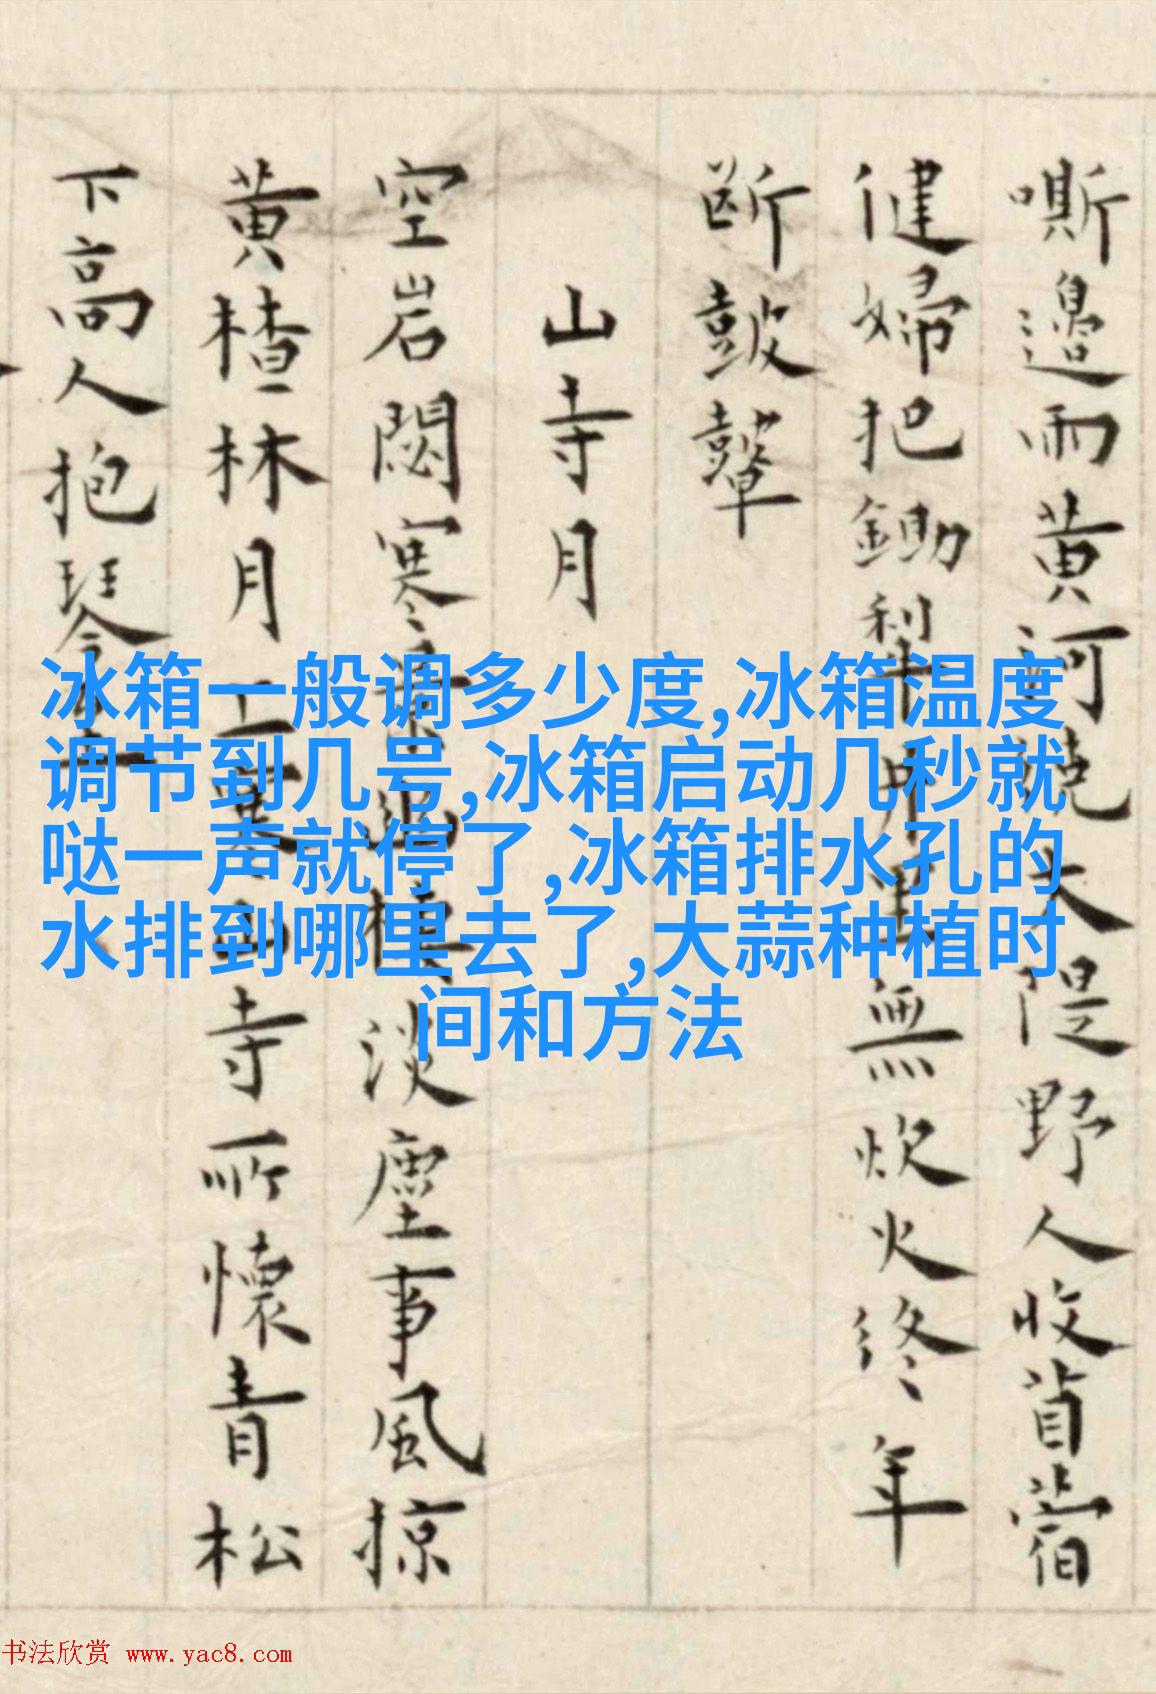 嘶邉雨黄河境大隄野人收苜蓿
健婦把鋤犁中野無炊火終年
斷皷鼙
山寺月
空岩閟寒淡塵事風掠
黄楂林月寺所懷青松
下高人抱琴
冰箱一般调多少度,冰箱温度
调节到几号,冰箱启动几秒就
哒一声就停了,冰箱排水孔的
水排到哪里去了,大蒜种植时
间和方法
书法欣赏 www.yac8.com